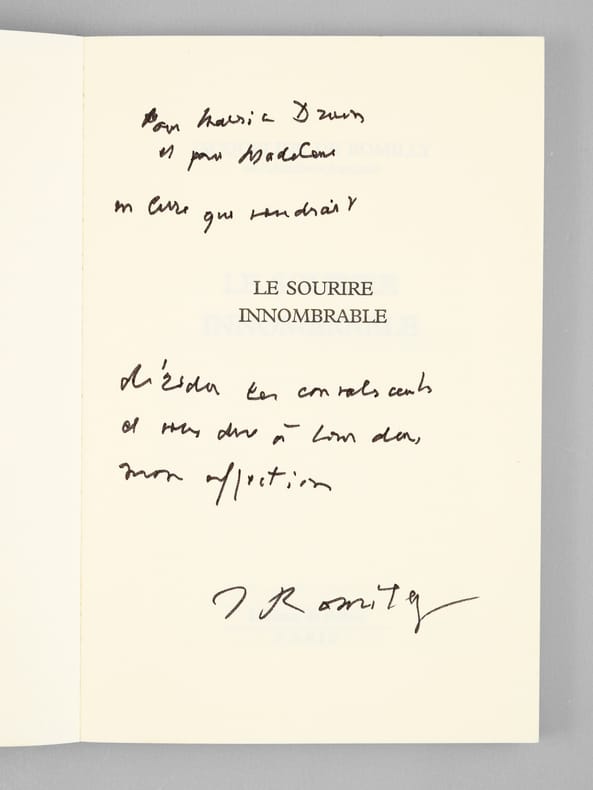 Pour Maurice Druon
et pour Madeleine
un livre qui voudrait
LE SOURIRE
INNOMBRABLE
dérider les convalescents
et vous dire à tous deux,
mon affection
J Romilly